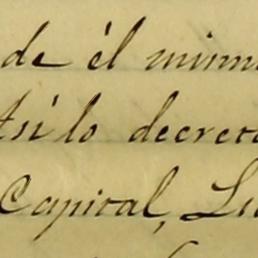 de él mism
Así lo decreta
Capital, Lu